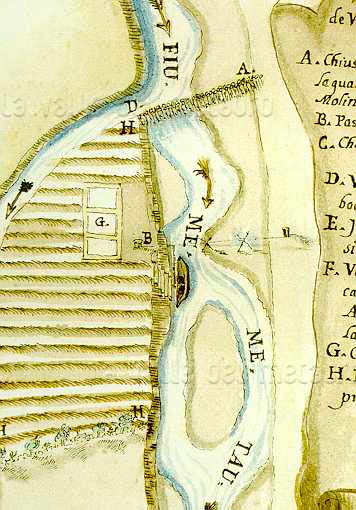 FIU.
ME.
ME.
TAU.
A.
D.
H
G.
B
H
de V
A. Chius
la qua
Molin
B. Pas
C. Ch
D. V
boc
E. I
si
F. V
ca
A
la
G. C
H.
pr